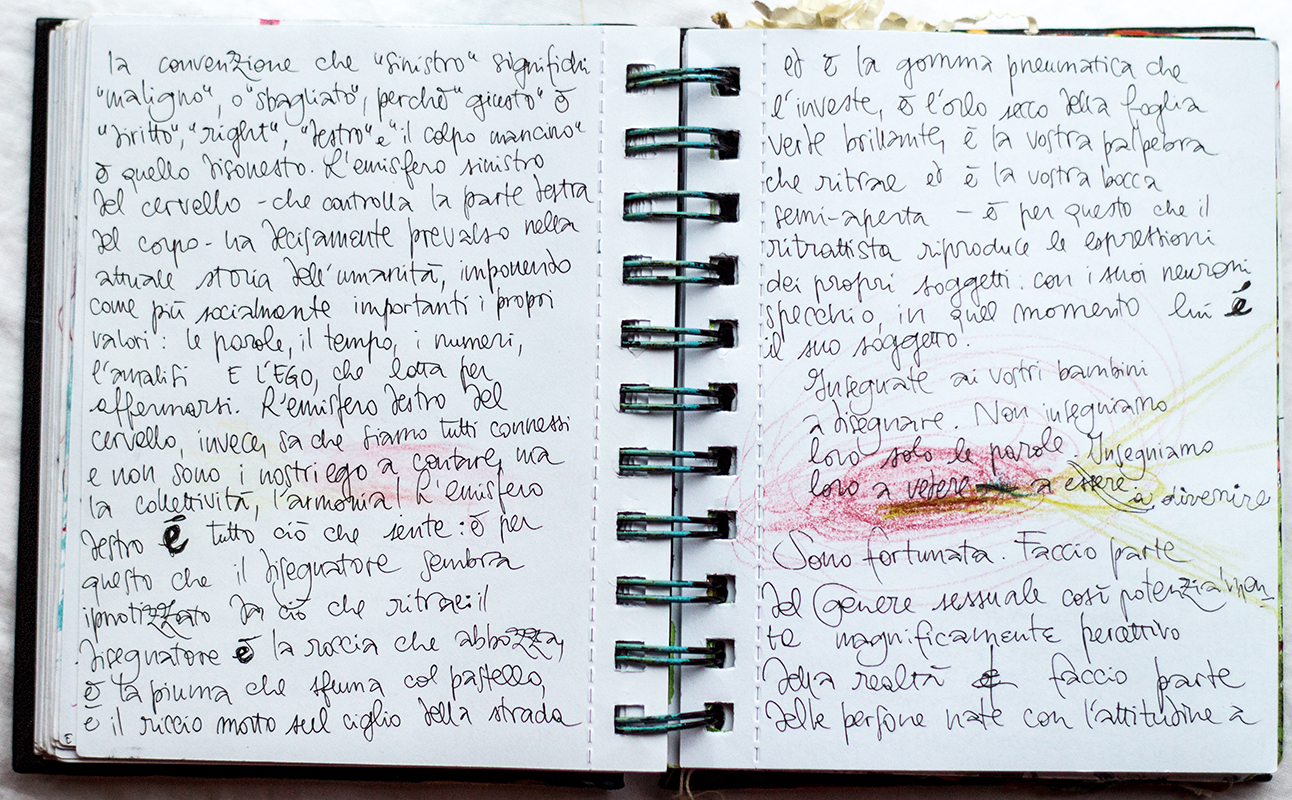 la convenzione che "sinistro" significhi
"maligno", o "sbagliato", perchè "giusto" è
"diritto", "right", "destro" e "il colpo mancino"
è quello disonesto. L'emisfero sinistro
del cervello - che controlla la parte destra
del corpo - ha decisamente prevalso nella
attuale storia dell'umanità, imponendo
come più socialmente importanti i propri
valori: le parole, il tempo, i numeri,
l'analisi E L'EGO, che lotta per
affermarsi. L'emisfero destro del
cervello, invece, sa che siamo tutti connessi
e non sono i nostri ego a contare, ma
la collettività, l'armonia! L'emisfero
destro è tutto ciò che sente: è per
questo che il disegnatore sembra
ipnotizzato da ciò che ritrae: il
disegnatore è la roccia che abbozza,
è la piuma che sfuma col pastello,
è il riccio morto sul ciglio della strada
E
ed è la gomma pneumatica che
l'investe, è l'orlo secco della foglia
verde brillante, è la vostra palpebra
che ritrae ed è la vostra bocca
semi-aperta - è per questo che il
ritrattista riproduce le espressioni
dei propri soggetti: con i suoi neuroni
specchio, in quel momento lui è
il suo soggetto.
Insegnate ai vostri bambini
a disegnare. Non insegniamo
loro solo le parole. Insegniamo
loro a vedere a essere. a divenire
Sono fortunata. Faccio parte
del Genere sessuale così potenzialmen_
te magnificamente percettivo
della realtà e faccio parte
delle persone nate con l'attitudine a